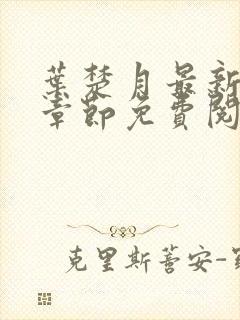 葉楚月最新
章節免費閱
克里斯蒼安-